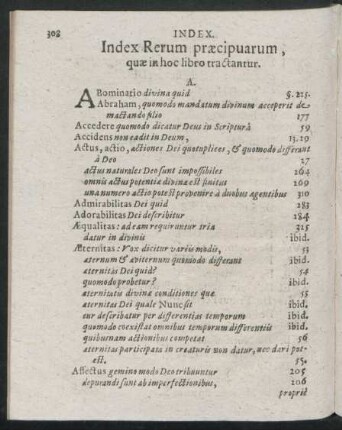 308 INDEX.
Index Rerum præcipuarum,
quæ in hoc libro tractantur.
A.
ABominatio divina quid §. 215.
Abraham, quomodo mandatum divinum acceperit de
mactando filio 177
Accedere quomodo dicatur Deus in Scripturà 59
Accidens non cadit in Deum, 15.19
Actus, actio, actiones Dei quotuplices, & quomodo differant
à Deo 27
actus naturales Deo sunt impossibiles 264
omnis actus potentiæ divinæ est finitus 269
una numero actio potest provenire à duobus agentibus 310
Admirabilitas Dei quid 283
Adorabilitas Dei describitur 284
Æqualitas: ad eam requiruntur tria 315
datur in divinis ibid.
Æternitas: vox dicitur variis modis, 53
æternum & æviternum quomodo differant ibid.
æternitas Dei quid? 54
quomodo probetur? ibid.
æternitatis divinæ conditiones quæ 55
æternitas Dei quale Nunc sit ibid.
cur describatur per differentias temporum ibid.
quomodo coexistat omnibus temporum differentiis ibid.
quibusnam actionibus competat 56
æternitas participata in creaturis non datur, nec dari pot-
est. 53.
Affectus gemino modo Deo tribuuntur 205
depurandi sunt ab imperfectionibus, 206
propriè